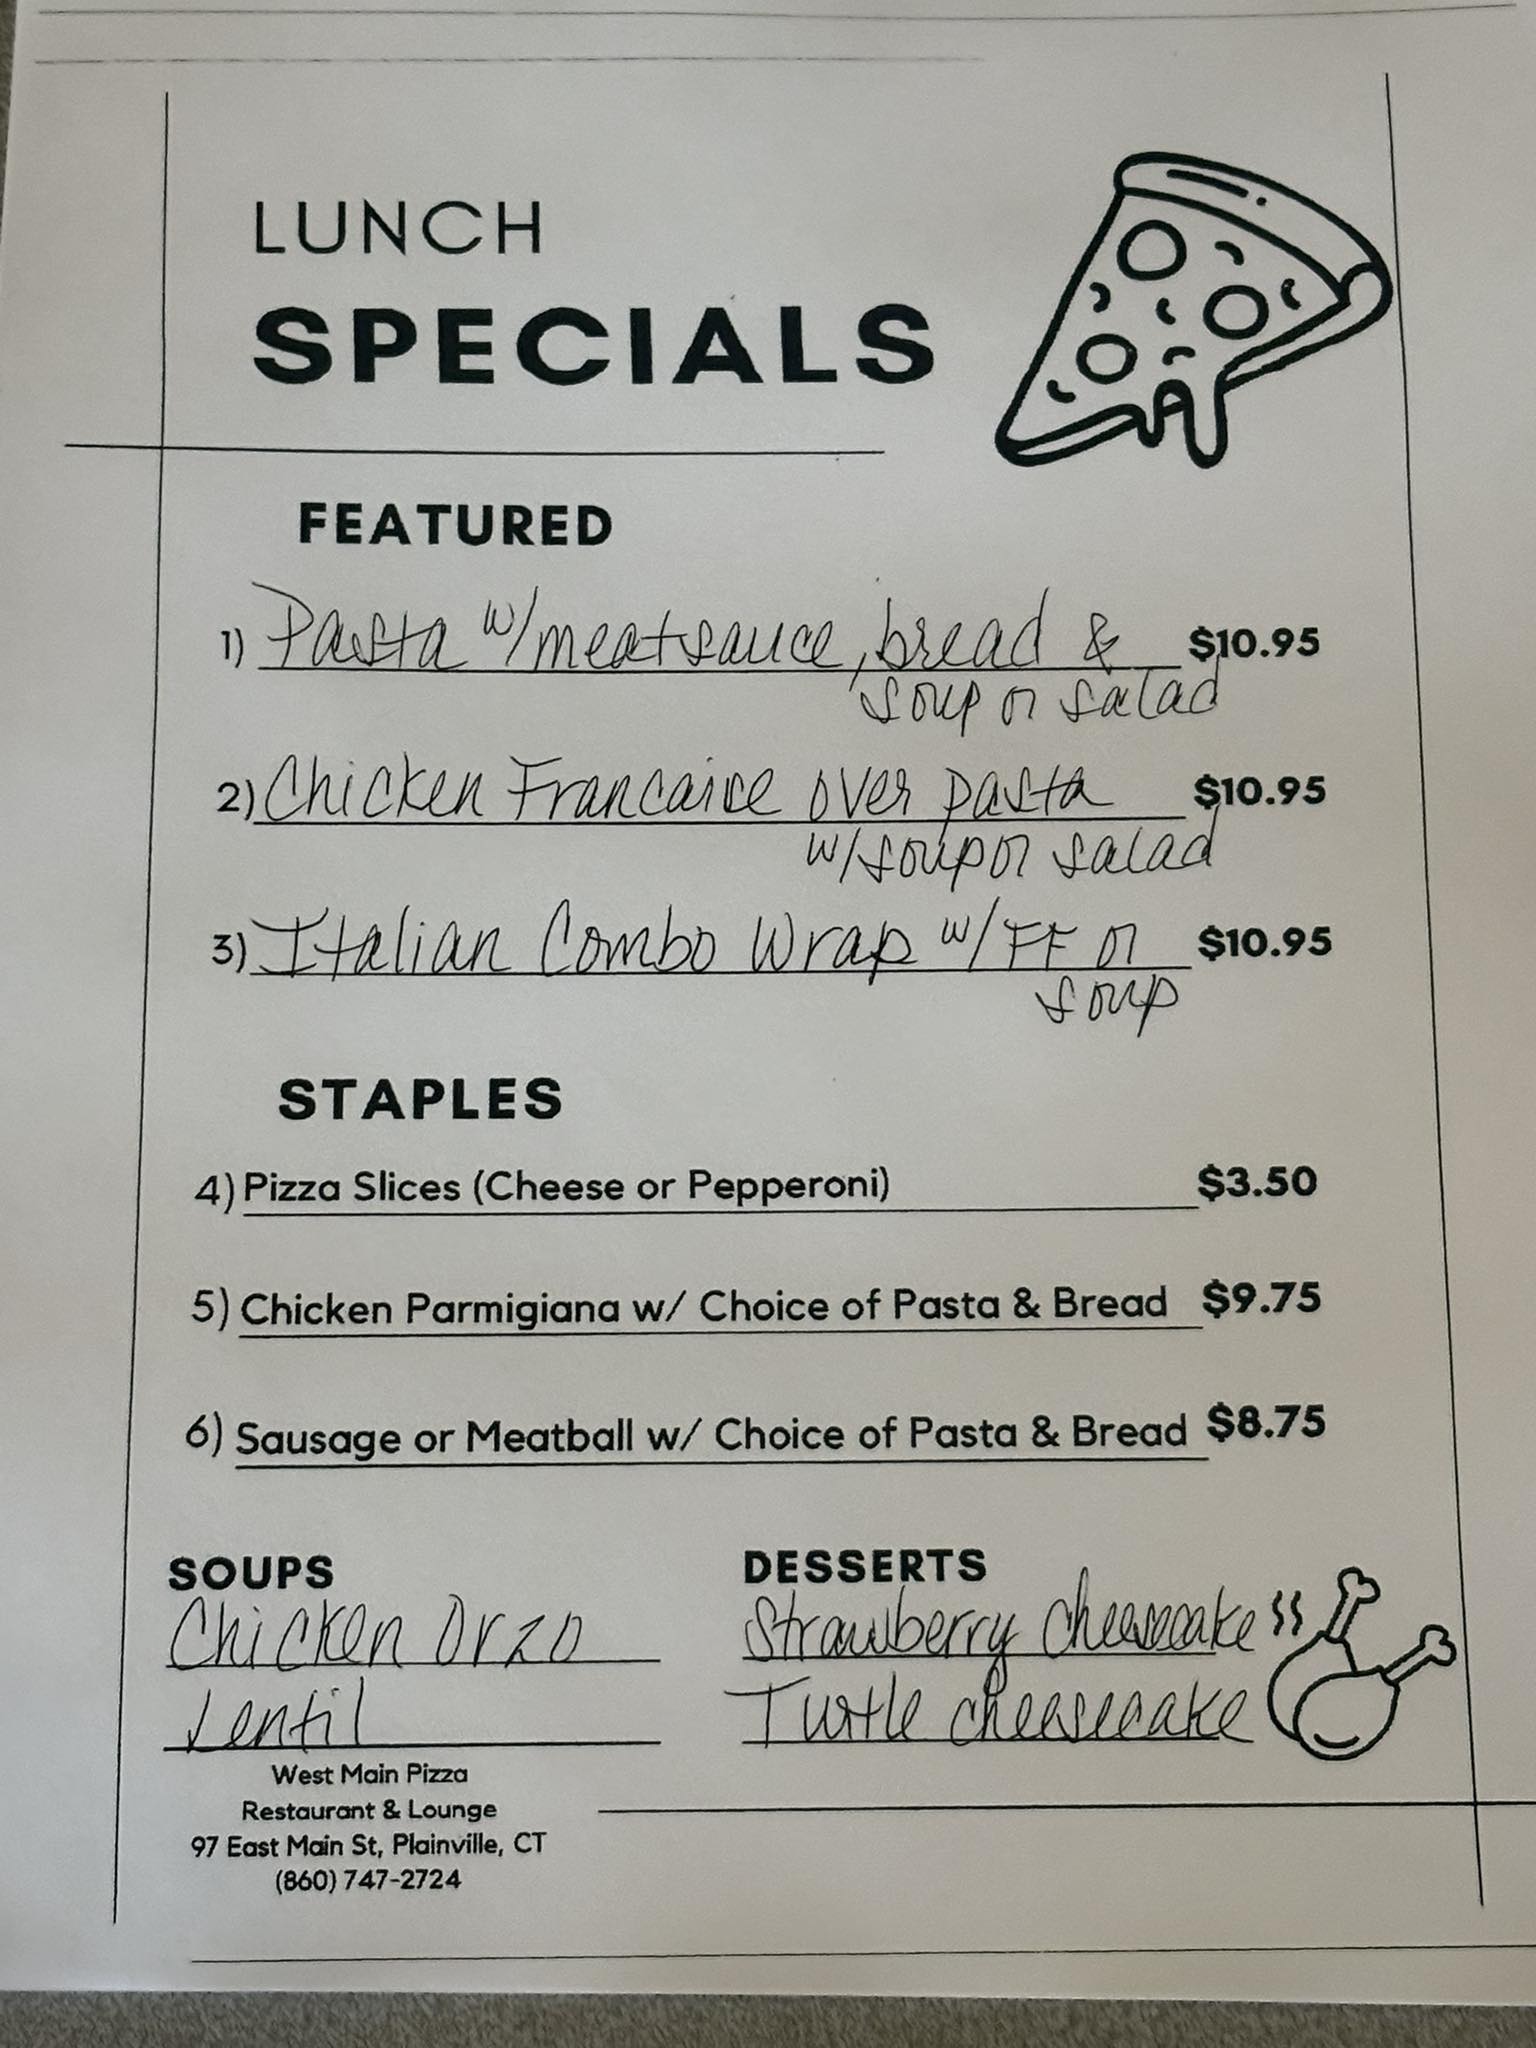 LUNCH
SPECIALS
FEATURED
1) Pasta w/meatsauce, bread & $10.95
soup or salad
2) Chicken Francaise over pasta $10.95
w/soup or salad
3) Italian Combo Wrap w/ FF or $10.95
soup
STAPLES
4) Pizza Slices (Cheese or Pepperoni) $3.50
5) Chicken Parmigiana w/ Choice of Pasta & Bread $9.75
6) Sausage or Meatball w/ Choice of Pasta & Bread $8.75
SOUPS
Chicken Orzo
Lentil
DESSERTS
Strawberry cheesecake
Turtle cheesecake
West Main Pizza
Restaurant & Lounge
97 East Main St, Plainville, CT
(860) 747-2724